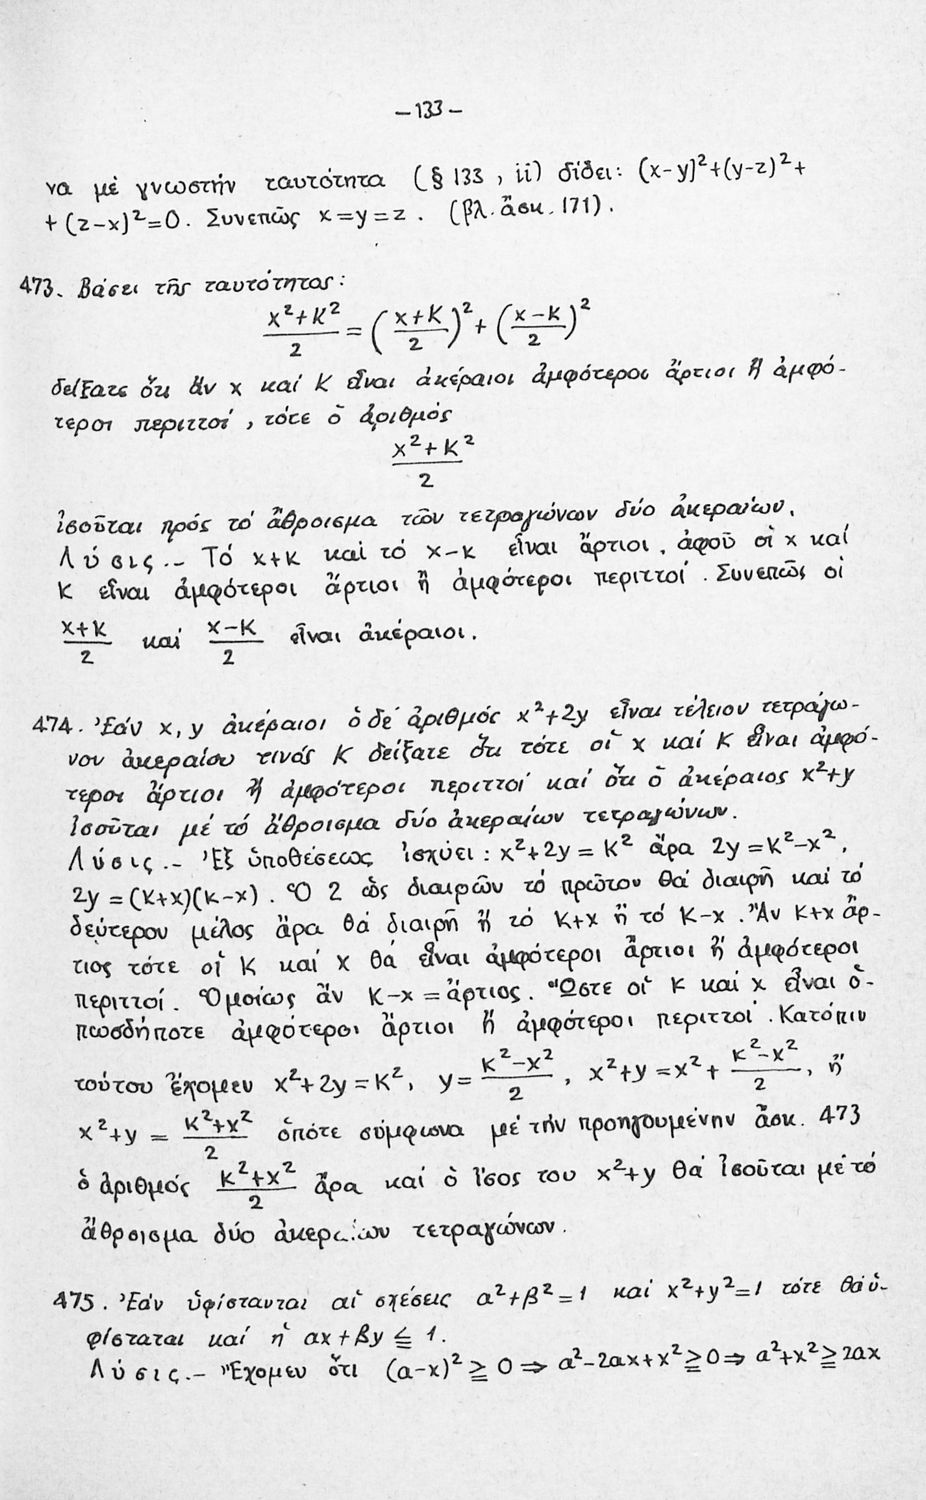 – 133 –
να μέ γνωστήν ταυτότητα (§ 133, ii) δίδει: (x-y)²+(y-z)²+
+(z-x)²=0. Συνεπῶς x=y=z. (βλ. ἄσκ. 171).
473. Βάσει τῆς ταυτότητος:
(x²+K²)/2 = ((x+K)/2)² + ((x-K)/2)²
δείξατε ὅτι ἄν x καί K εἶναι ἀκέραιοι ἀμφότεροι ἄρτιοι ἤ ἀμφό-
τεροι περιττοί, τότε ὁ ἀριθμός
(x²+K²)/2
ἰσοῦται πρός τό ἄθροισμα τῶν τετραγώνων δύο ἀκεραίων.
Λύσις.– Τό x+κ καί τό x-κ εἶναι ἄρτιοι, ἀφοῦ οἱ x καί
K εἶναι ἀμφότεροι ἄρτιοι ἤ ἀμφότεροι περιττοί. Συνεπῶς οἱ
(x+K)/2 καί (x-K)/2 εἶναι ἀκέραιοι.
474. Ἐάν x, y ἀκέραιοι ὁ δέ ἀριθμός x²+2y εἶναι τέλειον τετράγω-
νον ἀκεραίου τινός K δείξατε ὅτι τότε οἱ x καί K εἶναι ἀμφό-
τεροι ἄρτιοι ἤ ἀμφότεροι περιττοί καί ὅτι ὁ ἀκέραιος x²+y
ἰσοῦται μέ τό ἄθροισμα δύο ἀκεραίων τετραγώνων.
Λύσις.– Ἐξ ὑποθέσεως ἰσχύει: x²+2y = K² ἄρα 2y=K²-x²,
2y=(K+x)(K-x). Ὁ 2 ὡς διαιρῶν τό πρῶτον θά διαιρῇ καί τό
δεύτερον μέλος ἄρα θά διαιρῇ ἤ τό K+x ἤ τό K-x. Ἄν K+x ἄρ-
τιος τότε οἱ K καί x θά εἶναι ἀμφότεροι ἄρτιοι ἤ ἀμφότεροι
περιττοί. Ὁμοίως ἄν K-x = ἄρτιος. Ὥστε οἱ K καί x εἶναι ὁ-
πωσδήποτε ἀμφότεροι ἄρτιοι ἤ ἀμφότεροι περιττοί. Κατόπιν
τούτου ἔχομεν x²+2y=K², y=(K²-x²)/2, x²+y=x²+(K²-x²)/2, ἤ
x²+y = (K²+x²)/2 ὁπότε σύμφωνα μέ τήν προηγουμένην ἄσκ. 473
ὁ ἀριθμός (K²+x²)/2 ἄρα καί ὁ ἴσος του x²+y θά ἰσοῦται μέ τό
ἄθροισμα δύο ἀκεραίων τετραγώνων.
475. Ἐάν ὑφίστανται αἱ σχέσεις α²+β²=1 καί x²+y²=1 τότε θά ὑ-
φίσταται καί ἡ αx+βy ≦ 1.
Λύσις.– Ἔχομεν ὅτι (α-x)² ≧ 0 ⇒ α²-2αx+x² ≧ 0 ⇒ α²+x² ≧ 2αx